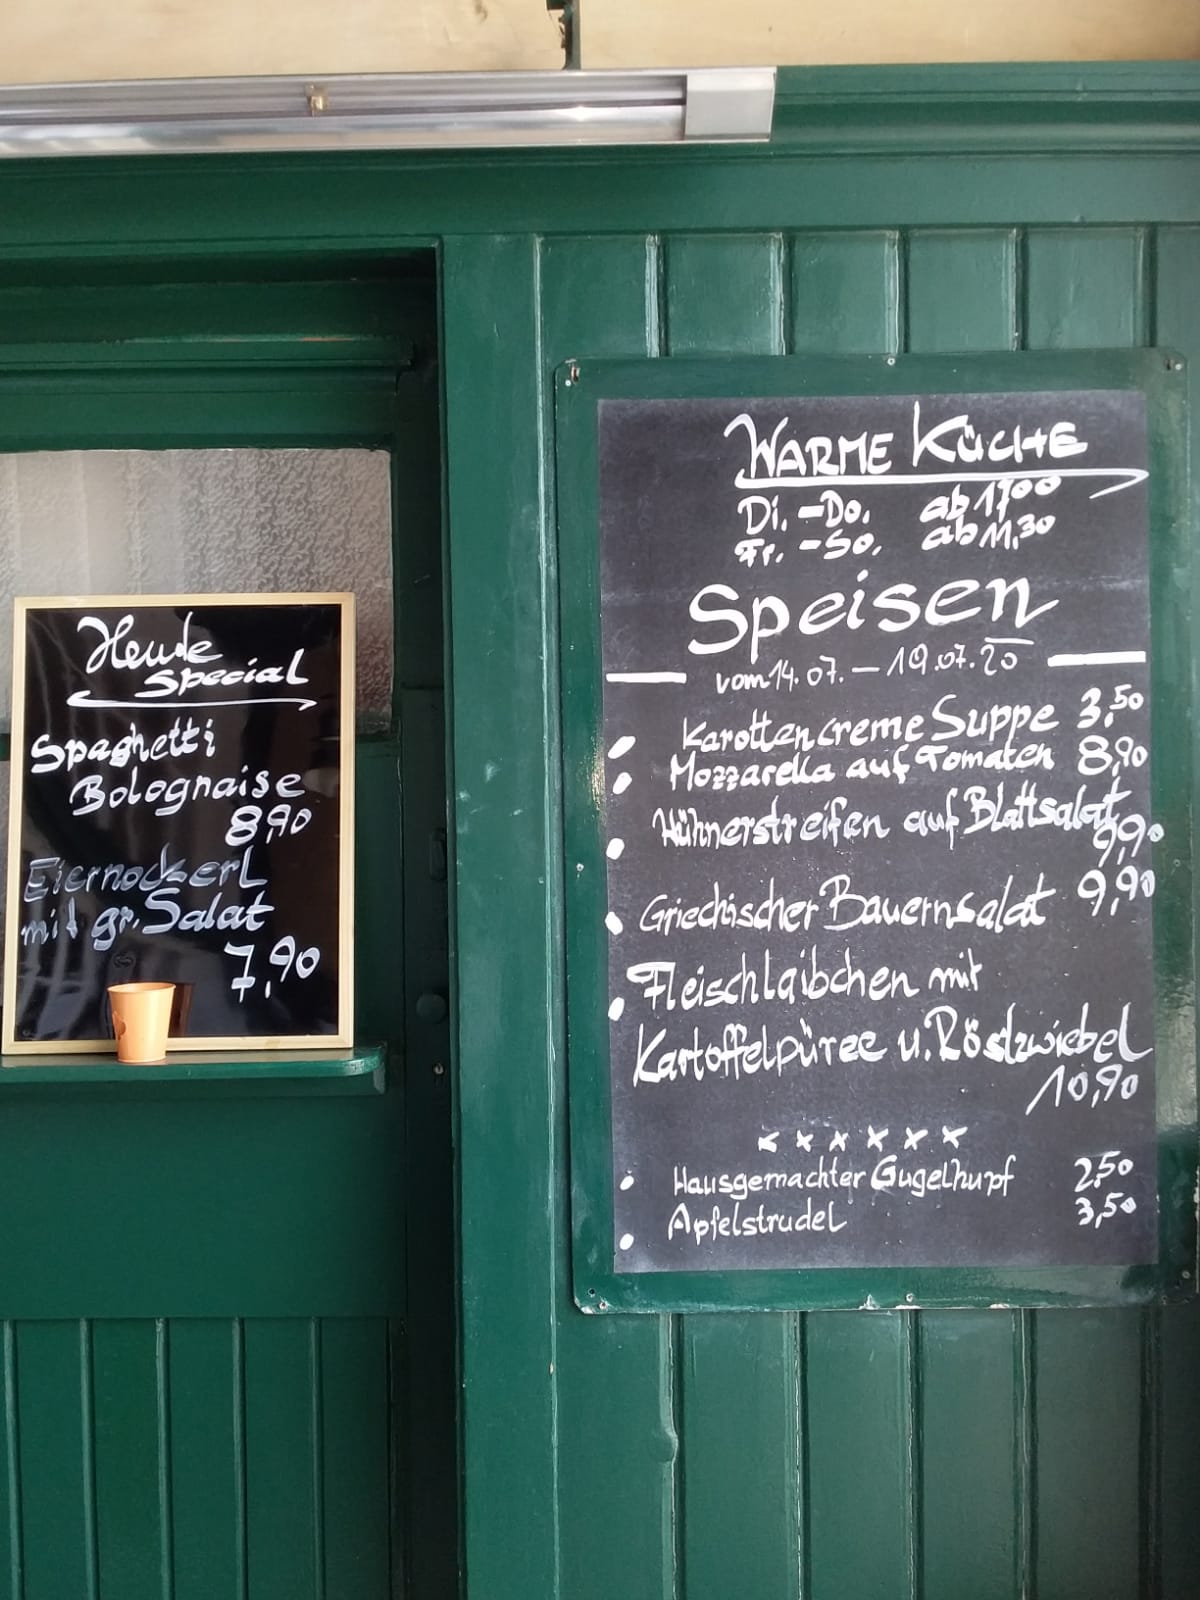 Heude
Special
Spaghetti
Bolognaise
8,90
Eiernockerl
mit gr. Salat
7,90
WARME KÜCHE
Di. - Do. ab 17°°
Fr. - So. ab 11,30
Speisen
vom 14.07. - 19.07.20
Karottencreme Suppe 3,50
Mozzarella auf Tomaten 8,90
Hühnerstreifen auf Blattsalat
9,90
Griechischer Bauernsalat 9,90
Fleischlaibchen mit
Kartoffelpüree u. Röstzwiebel
10,90
x x x x x x
Hausgemachter Gugelhupf 2,50
Apfelstrudel 3,50